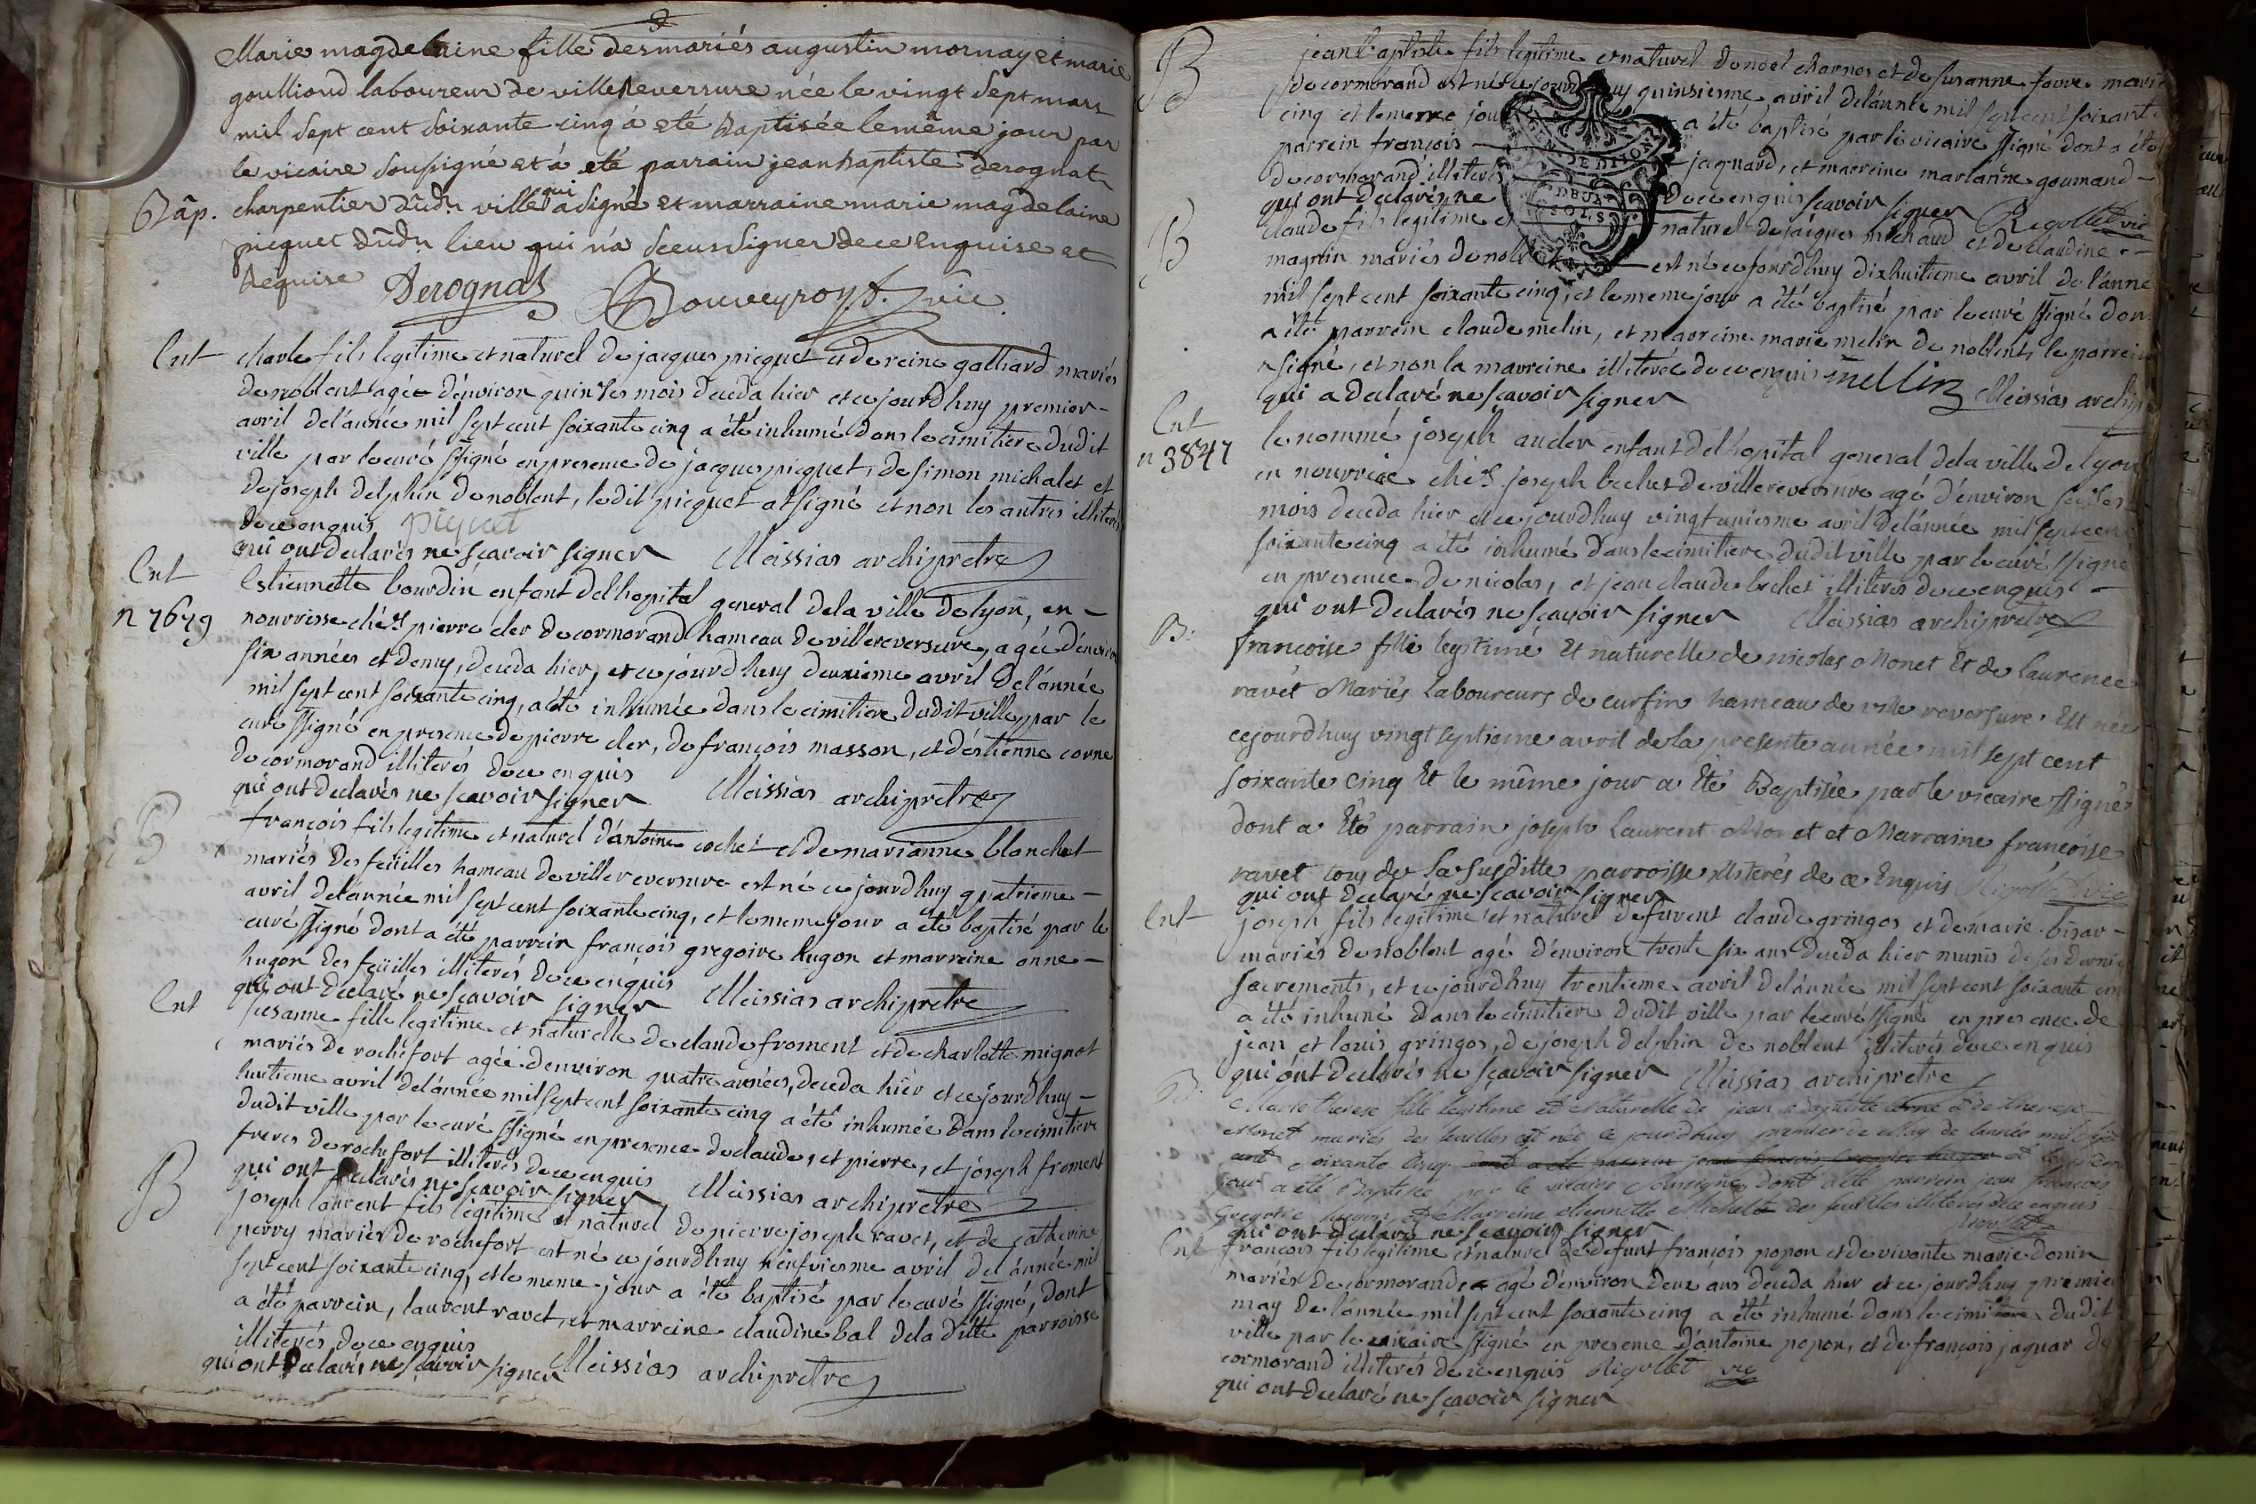 Marie magdelaine fille des mariés augustin mornay et marie
goulliond laboureur de villereversure née le vingt sept mars
mil sept cent soixante cinq a eté baptisée le même jour par
le vicaire sousigné et a eté parrain jean baptiste derognat
Bâp. charpentier dud. ville qui a signé et marraine marie magdelaine
picquet dud. lieu qui n'a sceu signer de ce enquise et
requise Derognat Bouveyron vic.
Ent charle fils legitime et naturel de jacques picquet et de reine galliard mariés
de noblent agée d'environ quinzes mois deceda hier et ce jourdhuy premier
avril de l'année mil sept cent soixante cinq a été inhumé dans le cimitiere dudit
ville par le curé ssigné en presence de jacque picquet, de simon michalet et
de joseph delphin de noblent, ledit picquet at signé et non les autres illiterés
de ce enquis piquet
qui ont declarés ne sçavoir signer Meissias archiprêtre
Ent Estiennette bourdin enfant de l'hopital general de la ville de lyon, en
n 7679 nourrisse chés pierre cler de cormorand hameau de villereversure, agée d'environ
six années et demy, deceda hier, et ce jourdhuy deuxieme avril de l'année
mil sept cent soixante cinq, a été inhumée dans le cimitiere dudit ville par le
curé ssigné en presence de pierre cler, de françois masson, et d'estienne corne
de cormorand illiterés de ce enquis
qui ont declarés ne sçavoir signer Meissias archiprêtre
B françois fils legitime et naturel d'antoine cochet et de marianne blanchet
mariés des feüilles hameau de villereversure est né ce jourdhuy quatrieme
avril de l'année mil sept cent soixante cinq, et le meme jour a été baptisé par le
curé ssigné dont a été parrein françois gregoire hugon et marreine anne
hugon des feüilles illiterés de ce enquis
qui ont declaré ne sçavoir signer Meissias archiprêtre
Ent susanne fille legitime et naturelle de claude froment et de charlotte mignot
mariés de rochefort agée d'environ quatre années, deceda hier et ce jourdhuy
huitieme avril de l'année mil sept cent soixante cinq a été inhumée dans le cimitiere
dudit ville par le curé ssigné en presence de claude, et pierre, et joseph froment
freres de rochefort illiterés de ce enquis
qui ont declarés ne sçavoir signer Meissias archiprêtre
B joseph laurent fils legitime et naturel de pierre joseph ravet, et de catherine
perry mariés de rochefort est né ce jourdhuy neufviesme avril de l'année mil
sept cent soixante cinq, et le meme jour a été baptisé par le curé ssigné, dont
a été parrein, laurent ravet, et marreine claudine bal de la ditte parroisse
illiterés de ce enquis
qui ont declarés ne sçavoir signer Meissias archiprêtre
B jean baptiste fils legitime et naturel de noel charnos et de susanne favre mariés
de cormorand est né ce jourdhuy quinsieme avril de l'année mil sept cent soixante
cinq et le meme jour a été baptisé par le vicaire ssigné dont a été
parrein françois jagnard, et marreine marianne goumand
de cormorand illiterés de ce enquis
qui ont declarés ne sçavoir signer Rigollet vic
GEN. DE DIJON
DEUX
SOLS
B claude fils legitime et naturel de jacques michaud et de claudine
magnin mariés de noblent est né ce jourdhuy dixhuitieme avril de l'anne
mil sept cent soixante cinq, et le meme jour a été baptisé par le curé ssigné dont
a été parrein claude melin, et marreine marie melin de noblent, le parrein
signé, et non la marreine illiterée de ce enquis mellin
qui a declaré ne sçavoir signer Meissias archip
Ent le nommé joseph auder enfant de l'hopital general de la ville de lyon
n 3847 en nourrice chés joseph bechet de villereversure agé d'environ seises
mois deceda hier et ce jourdhuy vingtuniesme avril de l'année mil sept cent
soixante cinq a été inhumé dans le cimitiere dudit ville par le curé ssigné
en presence de nicolas, et jean claude bechet illiterés de ce enquis
qui ont declarés ne sçavoir signer Meissias archiprêtre
B. francoise fille legitime Et naturelle de nicolas Monet Et de Laurence
ravet Mariés Laboureurs de curfin hameau de ville reversure. Est née
cejourd'huy vingt septieme avril de la presente année mil sept cent
soixante cinq Et le même jour a Eté Baptisée par le vicaire ssigné
dont a Eté parrain joseph Laurent Monet et Marraine françoise
ravet tous de La susditte parroisse illiterés de ce Enquis Rigollet vic
qui ont declaré ne sçavoir signer
Ent joseph fils legitime et naturel de furent claude gringos et de marie bisar
mariés de noblent agé d'environ trente six ans deceda hier munis de ses dernie
sacrements, et ce jourdhuy trentieme avril de l'année mil sept cent soixante cin
a été inhumé dans le cimitiere dudit ville par le curé ssigné en presence de
jean et louis gringos, de joseph delphin de noblent illiterés de ce enquis
qui ont declarés ne sçavoir signer Meissias archiprêtre
B. Marie therese fille legitime et Naturelle de jean Baptiste et de therese
Monet mariés des feuilles est née ce jourdhuy premier de May de l'année mil sept
cent soixante cinq
jour a eté Baptisée par le vicaire soussigné dont a été parrein jean francois
gregoire hugon et Marreine etiennette Michelet des feuilles illiterés de ce enquis
qui ont declaré ne sçavoir signer Rigollet
Ent francois fils legitime et naturel de defunt françois popon et de vivante marie donin
mariés de cormorand, agé d'environ deux ans deceda hier et ce jourdhuy premier
may de l'année mil sept cent soixante cinq a été inhumé dans le cimitiere dudit
ville par le vicaire ssigné en presence d'antoine popon, et de françois jaquar de
cormorand illiterés de ce enquis Rigollet vic
qui ont declaré ne sçavoir signer